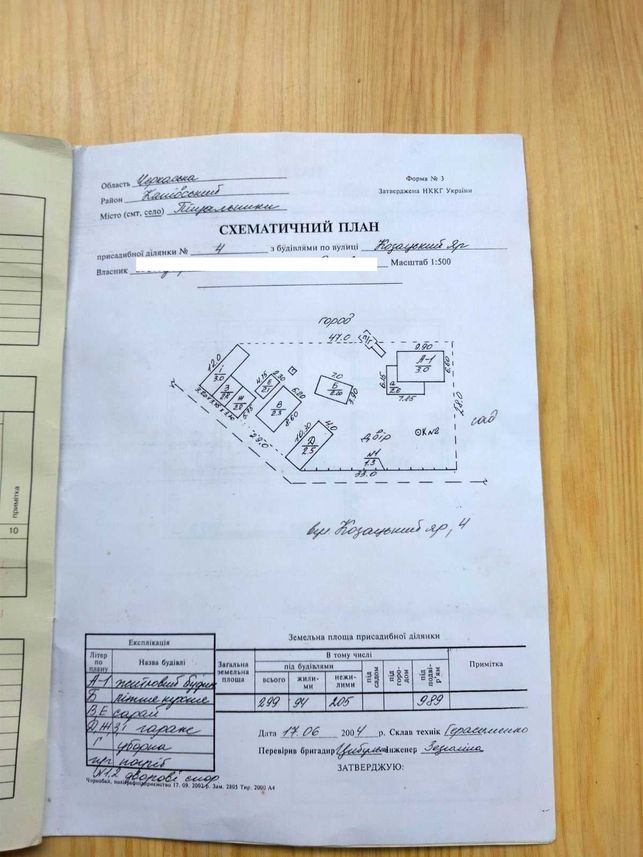 Область Черкаська
Форма № 3
Район Канівський
Затверджена НККГ України
Місто (смт, село) Пищальники
СХЕМАТИЧНИЙ ПЛАН
присадибної ділянки № 4 з будівлями по вулиці Козацький Яр
Власник Масштаб 1:500
город
47.0
12.0
І
3.0
З
Ж
4.15
2.30
Е
6.20
В
2.5
8.60
7.0
Б
9.90
А-1
3.0
6.60
6.15
а
2.0
7.25
28.0
сад
10.30
4.0
Д
2.5
29.0
двір
К№2
№1
1.3
33.0
вул Козацький яр, 4
Експлікація
Літер по плану
Назва будівлі
А-1 житловий будин
Б літня кухня
В,Е сараї
Д,Ж,З,І гаражі
Г уборна
пг погріб
№1,2 дворові спор
Земельна площа присадибної ділянки
Загальна земельна площа
В тому числі
Примітка
під будівлями
під садом
під городом
під подвір'ям
всього
жилими
нежилими
299 94 205 989
Дата 17.06 2004 р. Склав технік Герасименко
Перевірив бригадир Цибулько Інженер
ЗАТВЕРДЖУЮ:
17. 09. 2002 р. Зам. 2805 Тир. 2000 А4
примітка
10